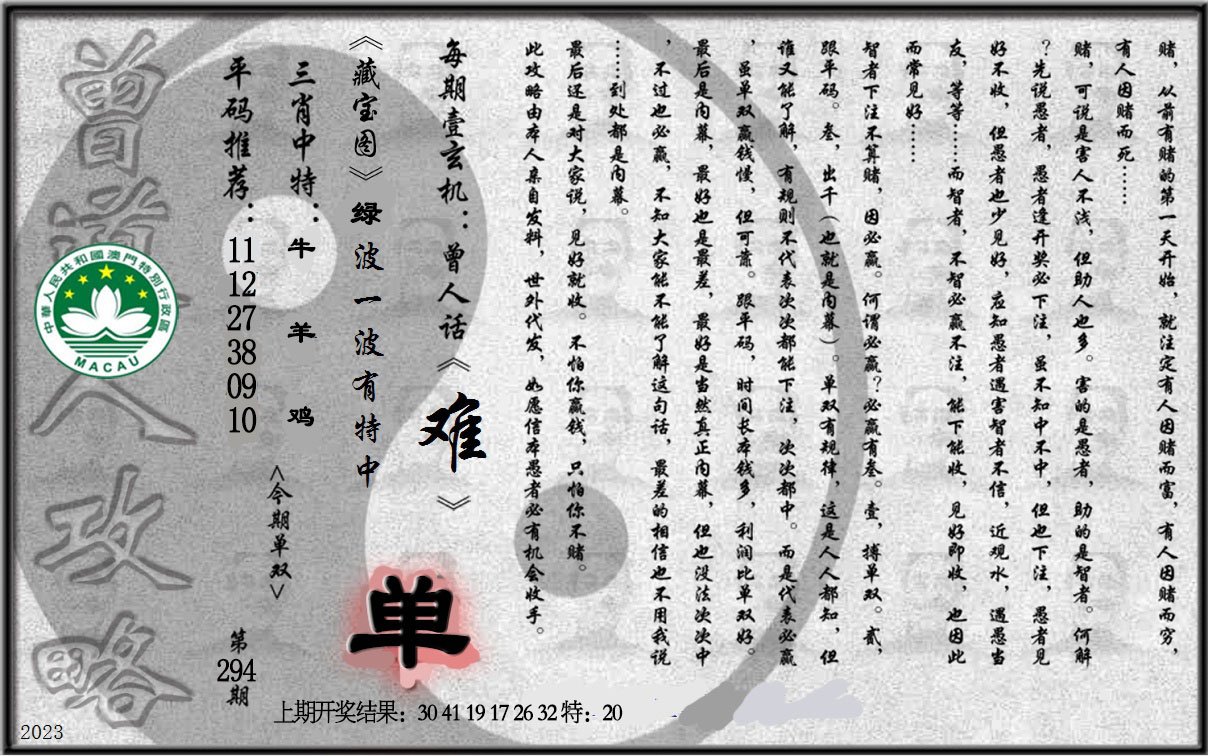 赌，从前有赌的第一天开始，就注定有人因赌而富，有人因赌而穷，
有人因赌而死……
赌，可说是害人不浅，但助人也多。害的是愚者，助的是智者。何解
？先说愚者，愚者逢开奖必下注，虽不知中不中，但也下注，愚者见
好不收，但愚者也少见好，应知愚者遇害智者不信，近观水，遇愚当
友，等等……而智者，不智必赢不注，能下能收，见好即收，也因此
而常见好……
智者下注不算赌，因必赢。何谓必赢？必赢有叁。壹，搏单双。贰，
跟平码。叁，出千（也就是内幕）。单双有规律，这是人人都知，但
谁又能了解，有规则不代表次次都能下注，次次都中。而是代表必赢
，虽单双赢钱慢，但可靠。跟平码，时间长本钱多，利润比单双好。
最后是内幕，最好也是最差，最好是当然真正内幕，但也没法次次中
，不过也必赢，不知大家能不能了解这句话，最差的相信也不用我说
……到处都是内幕。
最后还是对大家说，见好就收。不怕你赢钱，只怕你不赌。
此攻略由本人亲自发料，世外代发，如愿信本愚者必有机会收手。
每期壹玄机：曾人话《难》
《藏宝图》绿波一波有特中
单
三肖中特：牛 羊 鸡
<今期单双>
平码推荐：11 12 27 38 09 10
第294期
曾道人攻略
中華人民共和國澳門特別行政區
MACAU
上期开奖结果：30 41 19 17 26 32 特：20
2023